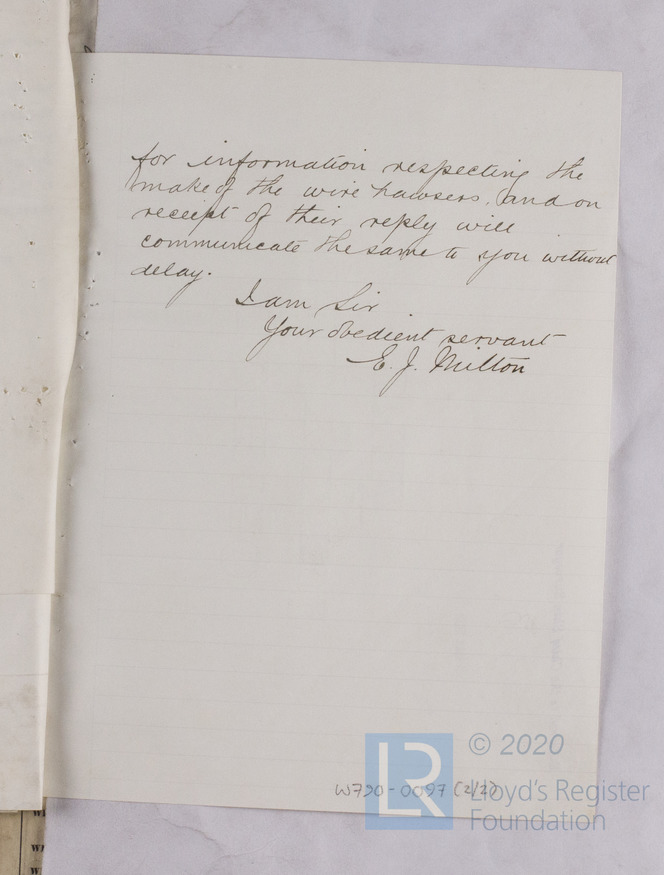 for information respecting the
make of the wire hawsers, and on
receipt of their reply will
communicate the same to you without
delay.
I am Sir
Your obedient servant
E. J. Milton
W790-0097 (2/2)
LR
© 2020
Lloyd's Register
Foundation